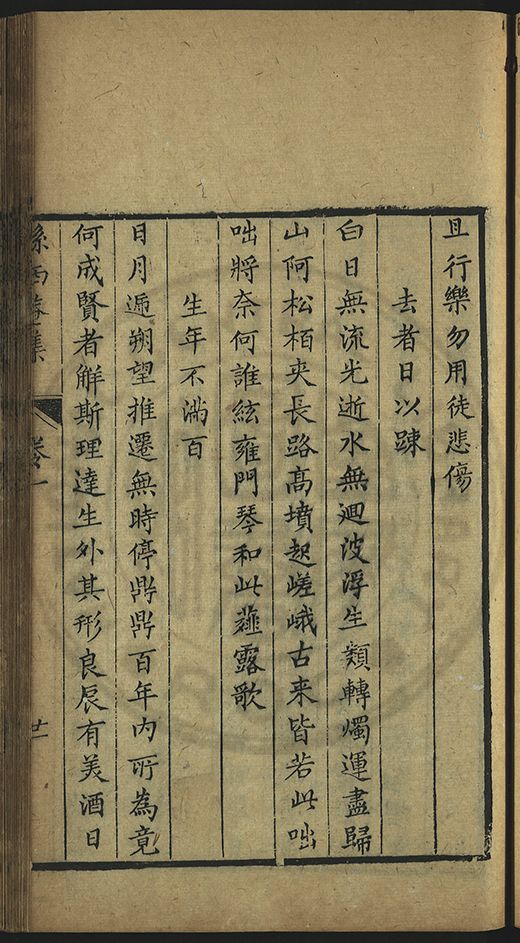 且行樂勿用徒悲傷
去者日以踈
白日無流光逝水無迴波浮生類轉燭運盡歸
山阿松栢夾長路高墳起嵯峨古来皆若此咄
咄將奈何誰絃雍門琴和此薤露歌
生年不滿百
日月遞朔望推遷無時停鼎鼎百年内所為竟
何成賢者觧斯理達生外其形良辰有美酒日
孫西菴集
卷一
廿